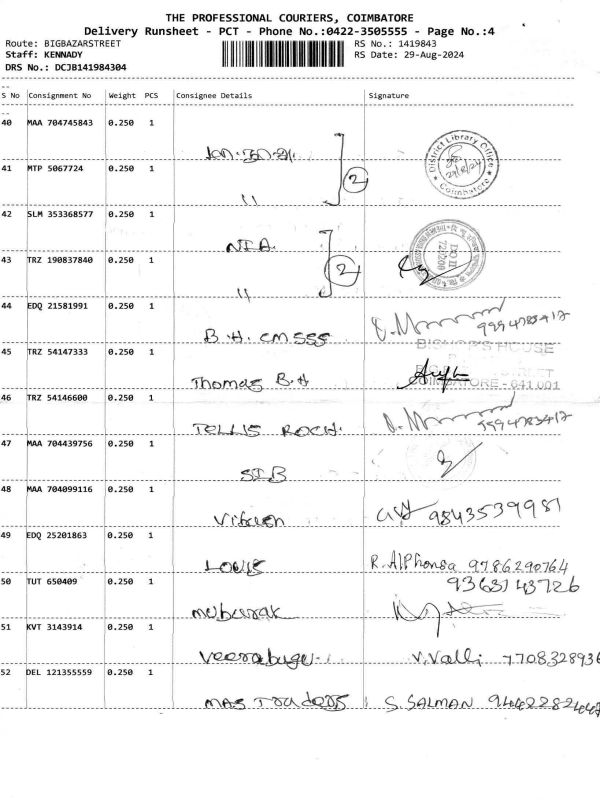 THE PROFESSIONAL COURIERS, COIMBATORE
Delivery Runsheet - PCT - Phone No.:0422-3505555 - Page No.:4
Route: BIGBAZARSTREET RS No.: 1419843
Staff: KENNADY RS Date: 29-Aug-2024
DRS No.: DCJB141984304
S No Consignment No Weight PCS Consignee Details Signature
40 MAA 704745843 0.250 1
District Library Office
Coimbatore
41 MTP 5067724 0.250 1
2
"
42 SLM 353368577 0.250 1
NIA
43 TRZ 190837840 0.250 1
2
"
44 EDQ 21581991 0.250 1
B.H. CM SSS
BISHOP'S HOUSE
45 TRZ 54147333 0.250 1
Thomas B.H
COIMBATORE - 641 001
46 TRZ 54146600 0.250 1
TELLIS ROCH.
47 MAA 704439756 0.250 1
SIB
48 MAA 704099116 0.250 1
9843539981
49 EDQ 25201863 0.250 1
LOUIS R. Alphonsa 9786290764
50 TUT 650409 0.250 1
9363743726
mubarak
51 KVT 3143914 0.250 1
V. Valli 7708328936
52 DEL 121355559 0.250 1
MAS Traders S. SALMAN